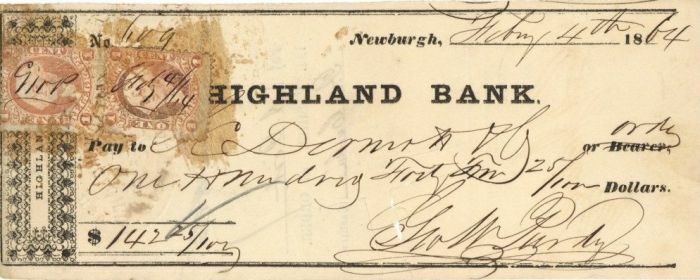 No 609 Newburgh, Feby 4th 1864
HIGHLAND BANK.
Pay to McDermott or Bearer, order
One Hundred Forty Two 25/100 Dollars.
$ 142 25/100
Geo W Purdy
HIGHLAND
GWP